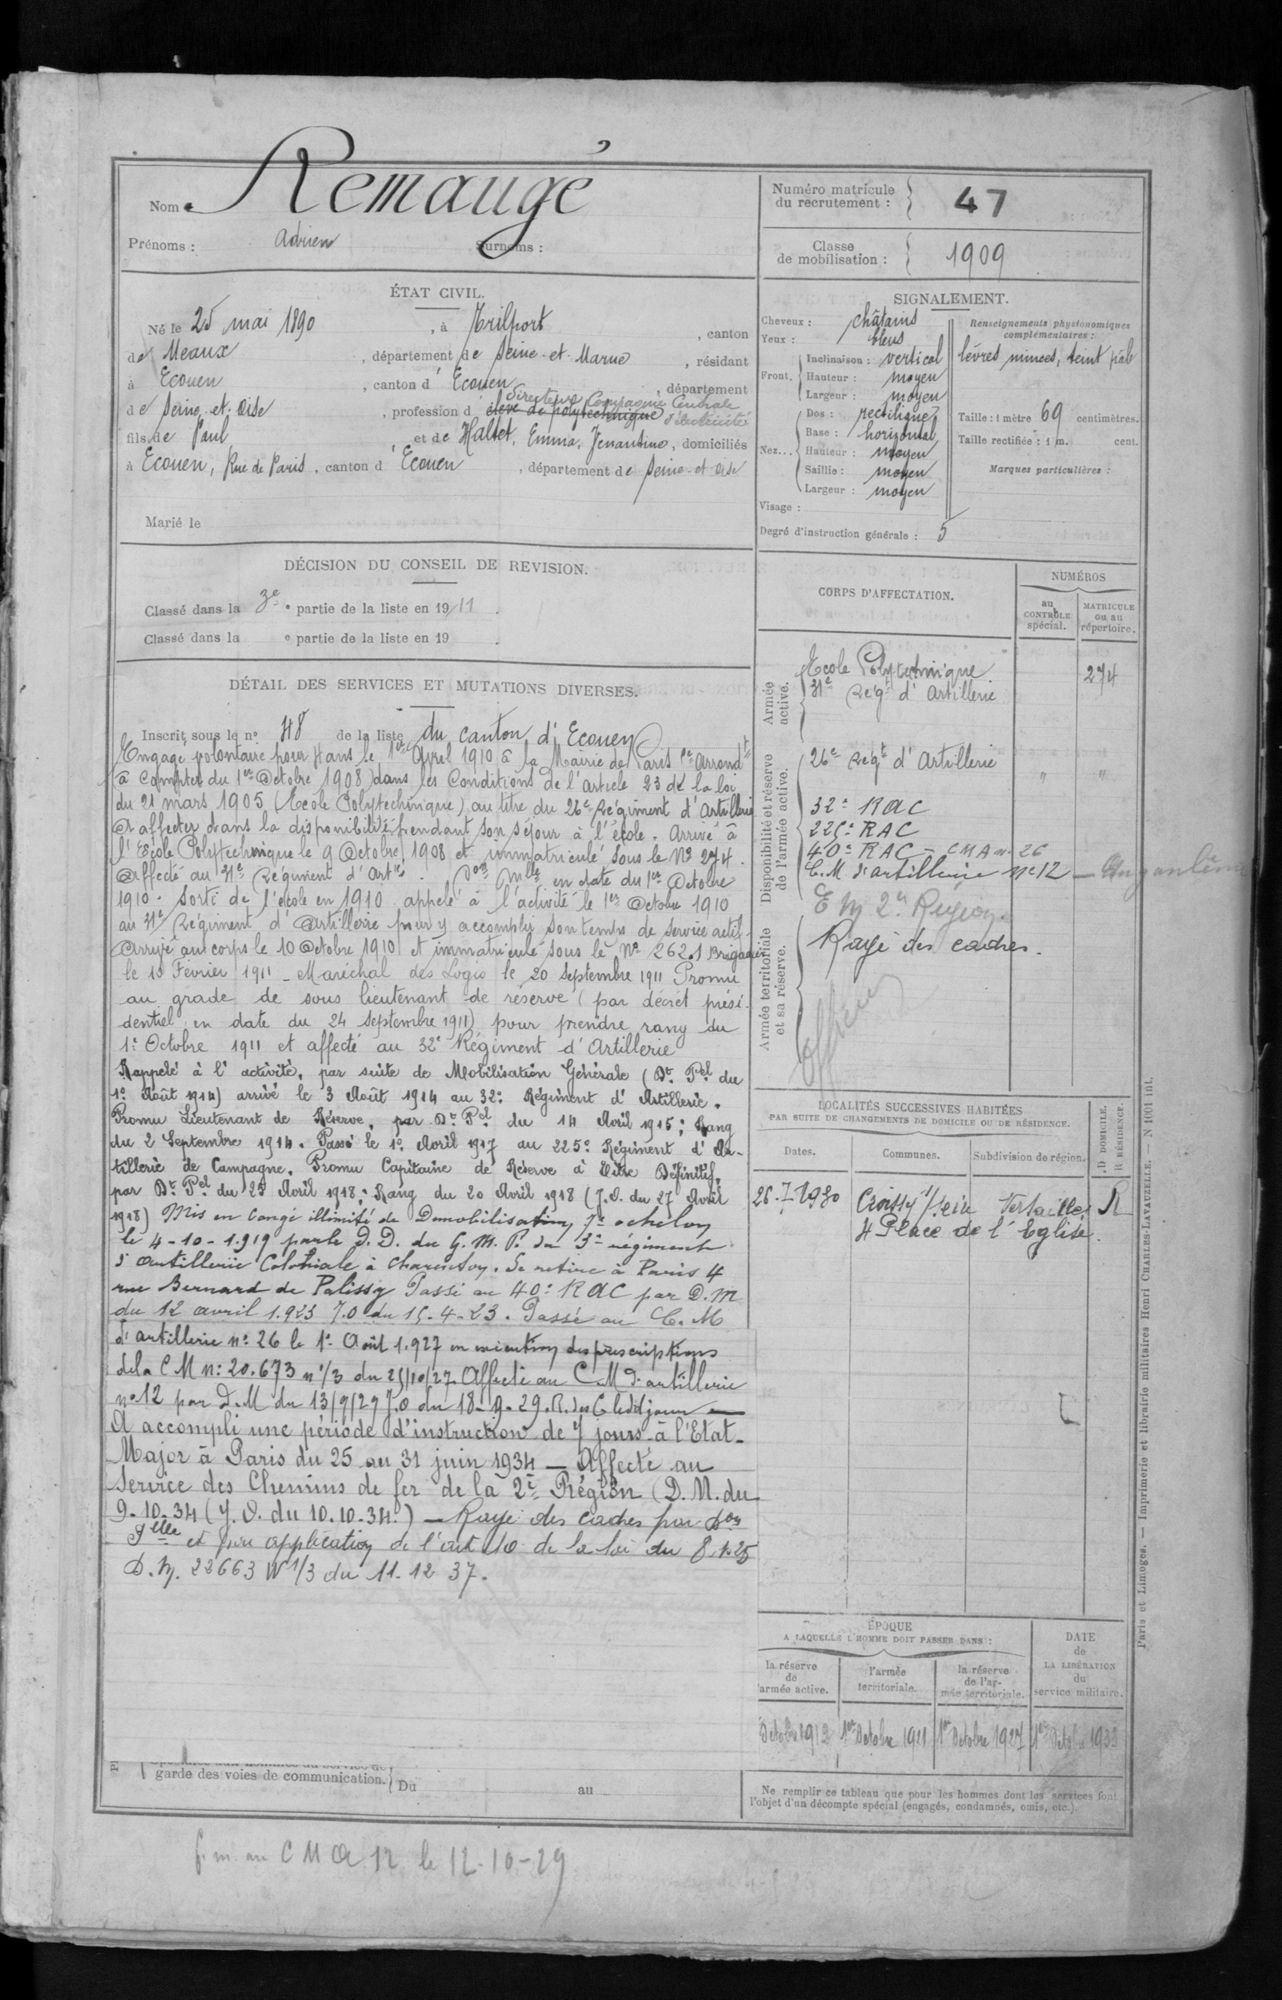 Nom Remaugé
Prénoms : Adrien Surnoms :
Numéro matricule du recrutement : 47
Classe de mobilisation : 1909
ÉTAT CIVIL.
Né le 25 mai 1890, à Trilport, canton
de Meaux, département de Seine-et-Marne, résidant
à Ecouen, canton d'Ecouen, département
Directeur Compagnie Centrale
de Seine-et-Oise, profession d'élève de polytechnique d'électricité
fils de Paul et de Hallet, Emma, Jenantine, domiciliés
à Ecouen, Rue de Paris, canton d'Ecouen, département de Seine-et-Oise
Marié le
SIGNALEMENT.
Cheveux : châtains
Yeux : bleus
Front. Inclinaison : vertical
Hauteur : moyen
Largeur : moyen
Nez... Dos : rectiligne
Base : horizontal
Hauteur : moyen
Saillie : moyen
Largeur : moyen
Visage :
Renseignements physionomiques complémentaires :
lèvres minces, teint pâle
Taille : 1 mètre 69 centimètres.
Taille rectifiée : 1 m. cent.
Marques particulières :
Degré d'instruction générale : 5
DÉCISION DU CONSEIL DE REVISION.
Classé dans la 3e partie de la liste en 1911.
Classé dans la e partie de la liste en 19 .
DÉTAIL DES SERVICES ET MUTATIONS DIVERSES.
Inscrit sous le n° 48 de la liste du canton d'Ecouen
Engagé volontaire pour 4 ans le 1er Avril 1910 à la Mairie de Paris Arrondt
à compter du 1er Octobre 1908 dans les Conditions de l'article 23 de la loi
du 21 mars 1905 (Ecole Polytechnique) au titre du 26e Régiment d'Artillerie
et affecter dans la disponibilité pendant son séjour à l'école. Arrivé à
l'Ecole Polytechnique le 9 Octobre 1908 et immatriculé sous le No 274.
Affecté au 31e Régiment d'Artie. Don Mlle en date du 1er Octobre
1910. Sorti de l'école en 1910 appelé à l'activité le 1er Octobre 1910
au 31e Régiment d'Artillerie pour y accomplir son temps de service actif
Arrivé au corps le 10 Octobre 1910 et immatriculé sous le No 2621 Brigadier
le 10 Février 1911 - Maréchal des Logis le 20 Septembre 1911 Promu
au grade de sous lieutenant de réserve (par décret prési-
dentiel en date du 24 septembre 1911) pour prendre rang du
1er Octobre 1911 et affecté au 32e Régiment d'Artillerie
Rappelé à l'activité, par suite de Mobilisation Générale (Dt. Pel du
1er Août 1914) arrivé le 3 Août 1914 au 32e Régiment d'Artillerie.
Promu Lieutenant de Réserve, par Dt Pel du 14 Avril 1915 ; Rang
du 2 Septembre 1914. Passé le 1er Avril 1917 au 225e Régiment d'Ar-
tillerie de Campagne. Promu Capitaine de Réserve à titre Définitif,
par Dt. Pel du 25 Avril 1918 ; Rang du 20 Avril 1918 (J.O. du 27 Avril
1918) Mis en congé illimité de Démobilisation, 7e echelon
le 4-10-1919 par le D.D. du G.M.P. du 3e régiment
d'Artillerie Coloniale à Charenton. Se retire à Paris 4
rue Bernard de Palissy Passé au 40e RAC par D.M
du 12 avril 1.923 J.O. du 15-4-23. Passé au C.M
d'artillerie no 26 le 1er Août 1.927 en exécution des prescriptions
de la CM no 20.673 n 1/3 du 25/10/27. Affecté au C.M d'artillerie
no 12 par D.M du 13/9/29 J.O du 18-9-29.
A accompli une période d'instruction de 7 jours à l'Etat-
Major à Paris du 25 au 31 juin 1934 — Affecté au
Service des Chemins de fer de la 2e Région (D.M. du
9-10-34 (J.O. du 10.10.34.) — Rayé des cadres par Don
Plle et par application de l'art 10 de la loi du 8.1.25
D.M. 22663 W 1/3 du 11.12 37.
CORPS D'AFFECTATION.
NUMÉROS
au CONTRÔLE spécial.
MATRICULE ou au répertoire.
Armée active.
Ecole Polytechnique 274
31e Régt d'Artillerie
Disponibilité et réserve de l'armée active.
26e Régt d'Artillerie " "
32e RAC
225e RAC
40e RAC - CMA no 26
C.M. d'artillerie no 12 - Angoulême
E M 2e Région
Armée territoriale et sa réserve.
Rayé des cadres.
Officier
LOCALITÉS SUCCESSIVES HABITÉES
PAR SUITE DE CHANGEMENTS DE DOMICILE OU DE RÉSIDENCE.
Dates. Communes. Subdivision de région. D. DOMICILE. R RÉSIDENCE.
26-7-1930 Croissy s/Seine Versailles R
4 Place de l'Eglise
ÉPOQUE
A LAQUELLE L'HOMME DOIT PASSER DANS :
la réserve de l'armée active.
l'armée territoriale.
la réserve de l'armée territoriale.
DATE de LA LIBÉRATION du service militaire.
Octobre 1912 1er Octobre 1921 1er Octobre 1927 1er Octobre 1933
garde des voies de communication. Du au
Ne remplir ce tableau que pour les hommes dont les services font
l'objet d'un décompte spécial (engagés, condamnés, omis, etc.).
Paris et Limoges. — Imprimerie et librairie militaires Henri CHARLES-LAVAUZELLE. — N 1001 int.
f. m. au CMA 12 le 12-10-29